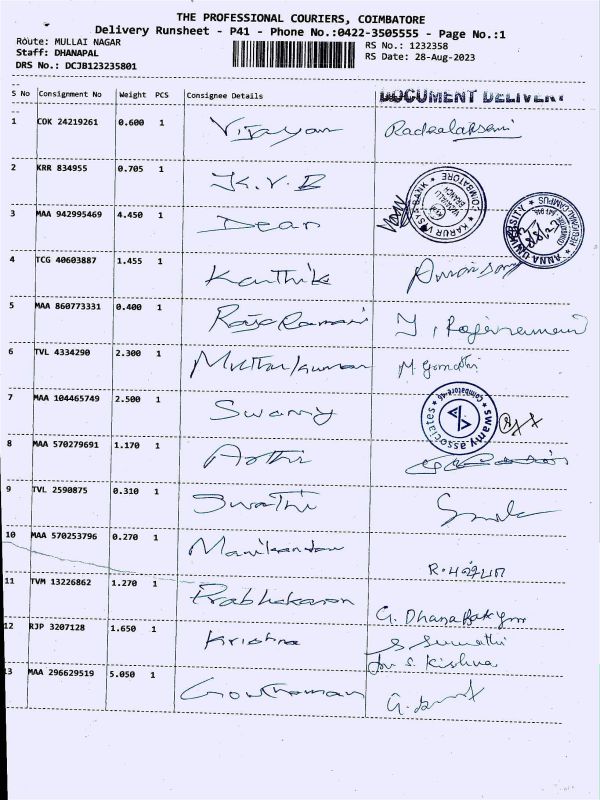 THE PROFESSIONAL COURIERS, COIMBATORE
Delivery Runsheet - P41 - Phone No.:0422-3505555 - Page No.:1
Route: MULLAI NAGAR
Staff: DHANAPAL
DRS No.: DCJB123235801
RS No.: 1232358
RS Date: 28-Aug-2023
S No Consignment No Weight PCS Consignee Details DOCUMENT DELIVERY
1 COK 24219261 0.600 1 Vijayan
2 KRR 834955 0.705 1 K.V.B
KARUR VYSYA BANK COIMBATORE BRANCH
3 MAA 942995469 4.450 1 Dean
ANNA UNIVERSITY
4 TCG 40603887 1.455 1 Karthik
5 MAA 860773331 0.400 1
6 TVL 4334290 2.300 1 Muthukumar M. Gomathi
7 MAA 104465749 2.500 1 Swamy
swamy associates Coimbatore
8 MAA 570279691 1.170 1 Arthi
9 TVL 2590875 0.310 1 Swathi
10 MAA 570253796 0.270 1 Manikandan
11 TVM 13226862 1.270 1 Prabhakaran
12 RJP 3207128 1.650 1 Krishna S Sumathi
for S. Kishna
13 MAA 296629519 5.050 1 Gowthaman